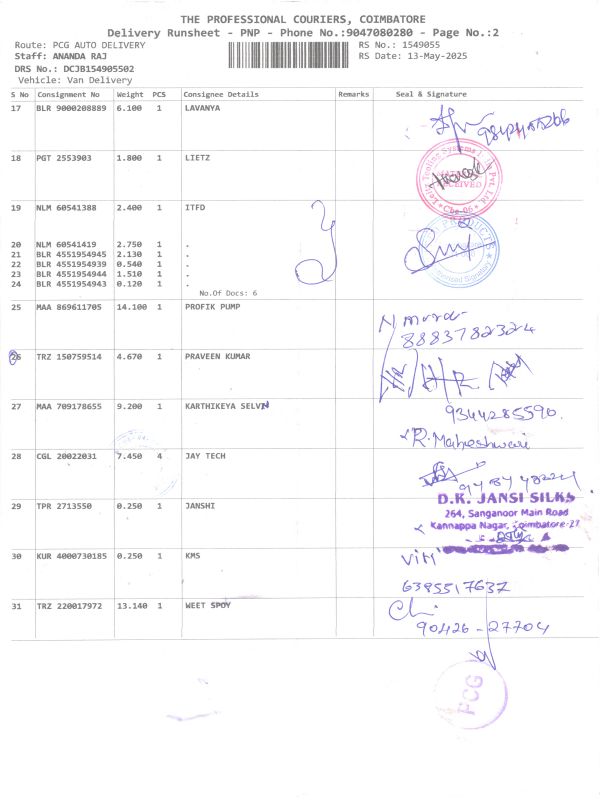 THE PROFESSIONAL COURIERS, COIMBATORE
Delivery Runsheet - PNP - Phone No.:9047080280 - Page No.:2
Route: PCG AUTO DELIVERY RS No.: 1549055
Staff: ANANDA RAJ RS Date: 13-May-2025
DRS No.: DCJB154905502
Vehicle: Van Delivery
S No Consignment No Weight PCS Consignee Details Remarks Seal & Signature
17 BLR 9000208889 6.100 1 LAVANYA
18 PGT 2553903 1.800 1 LIETZ
19 NLM 60541388 2.400 1 ITFD
20 NLM 60541419 2.750 1 .
21 BLR 4551954945 2.130 1 .
22 BLR 4551954939 0.540 1 .
23 BLR 4551954944 1.510 1 .
24 BLR 4551954943 0.120 1 .
No.Of Docs: 6
25 MAA 869611705 14.100 1 PROFIK PUMP
8883782324
26 TRZ 150759514 4.670 1 PRAVEEN KUMAR
27 MAA 709178655 9.200 1 KARTHIKEYA SELVIN
9344285590.
R. Maheshwari
28 CGL 20022031 7.450 4 JAY TECH
D.K. JANSI SILKS
264, Sanganoor Main Road
Kannappa Nagar, Coimbatore-27
29 TPR 2713550 0.250 1 JANSHI
30 KUR 4000730185 0.250 1 KMS
6395517637
31 TRZ 220017972 13.140 1 WEET SPOY
90426-27704
PCG